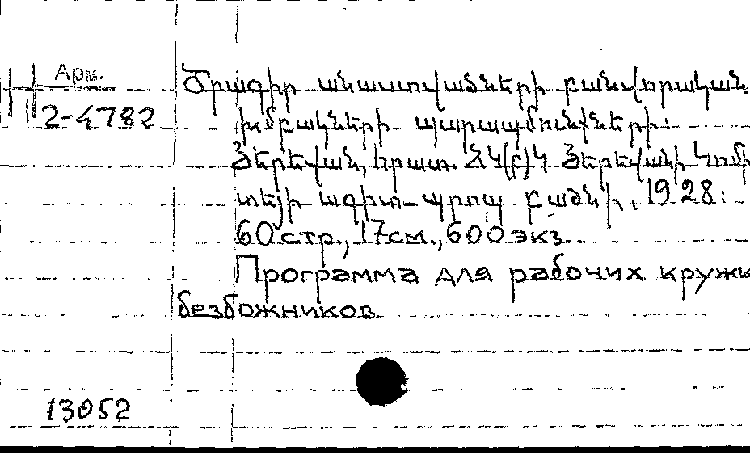 Арм.
2-4782
Ծրագիր անաստվածների բանվորական
խմբակների պարապմունքների:
Յերեվան, հրատ. ՀԿ(բ)Կ Յերեվանի Կոմի
տեյի ագիտ-պրոպ բաժնի, 1928:
60 стр., 17см., 600 экз.
Программа для рабочих кружк
безбожников
13052